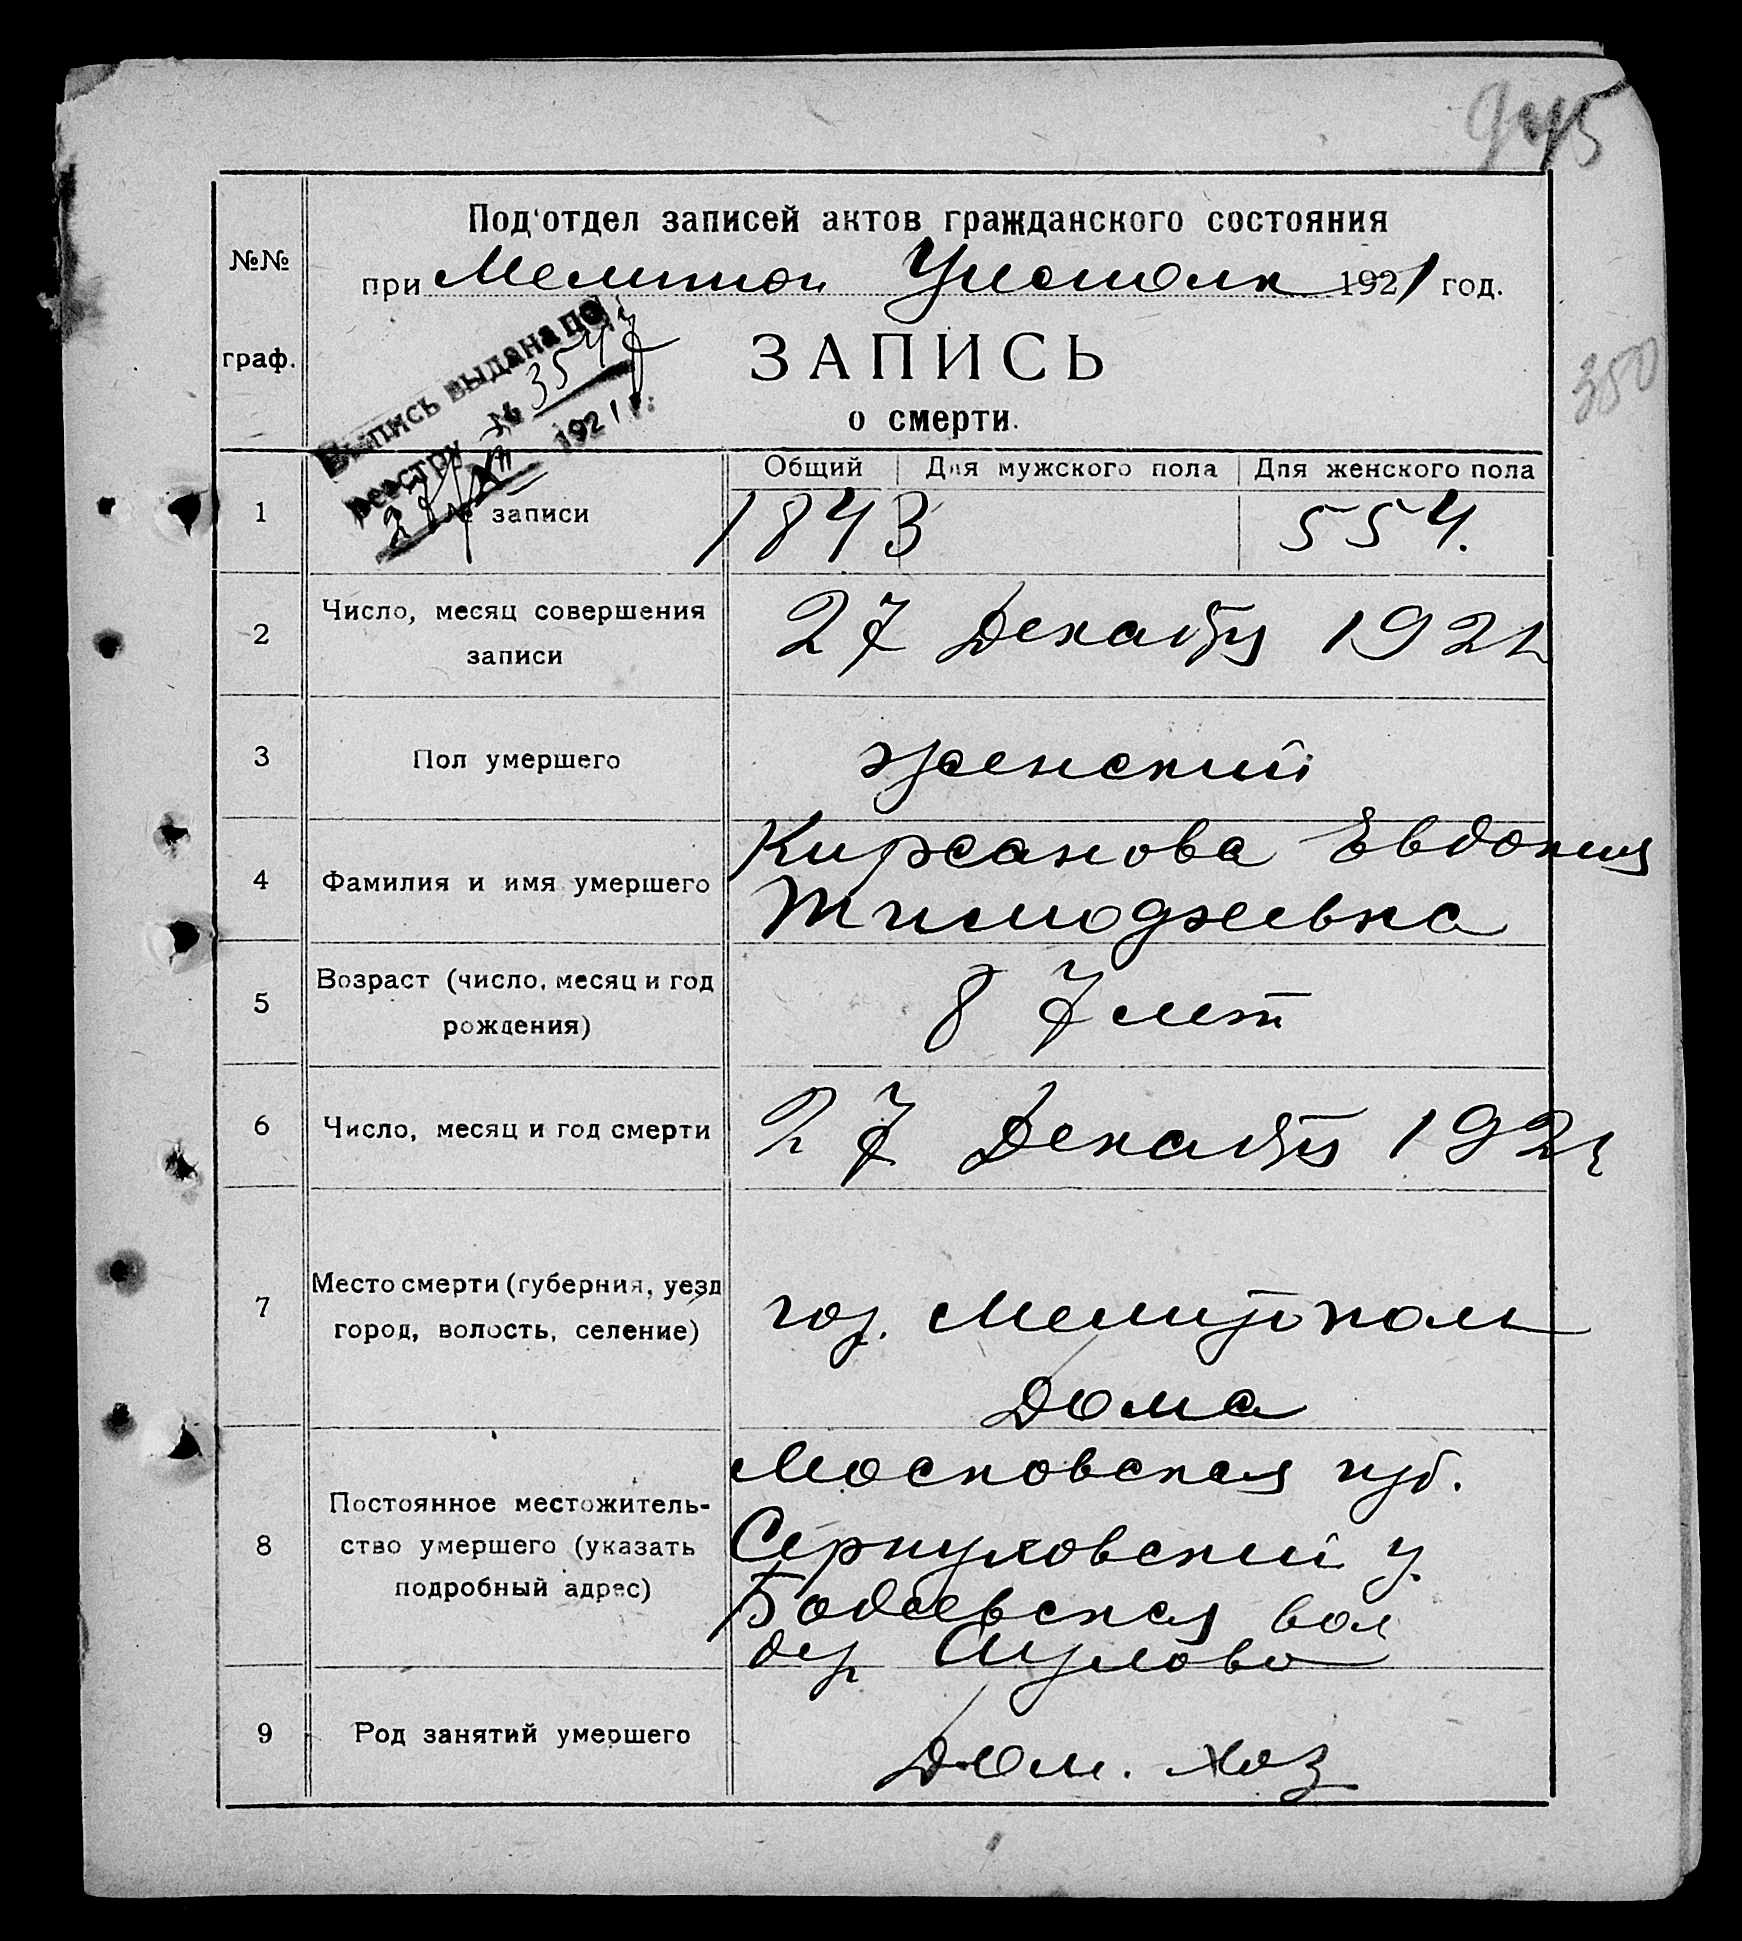 945
Под'отдел записей актов гражданского состояния
№№
при Мелитоп. Уисполк 1921 год.
граф.
ЗАПИСЬ
о смерти.
350
Выпись выдана по
реестру № 3547
1921 г.
Общий Для мужского пола Для женского пола
1 № записи 1843 554.
2 Число, месяц совершения записи 27 Декабря 1921
3 Пол умершего женский
4 Фамилия и имя умершего Кирсанова Евдокия
Тимофеевна
5 Возраст (число, месяц и год рождения) 87 лет
6 Число, месяц и год смерти 27 Декабря 1921
7 Место смерти (губерния, уезд
город, волость, селение) гор. Мелитополь
Дома
8 Постоянное местожитель-
ство умершего (указать
подробный адрес) Московская губ.
Серпуховский у.
вол
дер
9 Род занятий умершего Дом. хоз